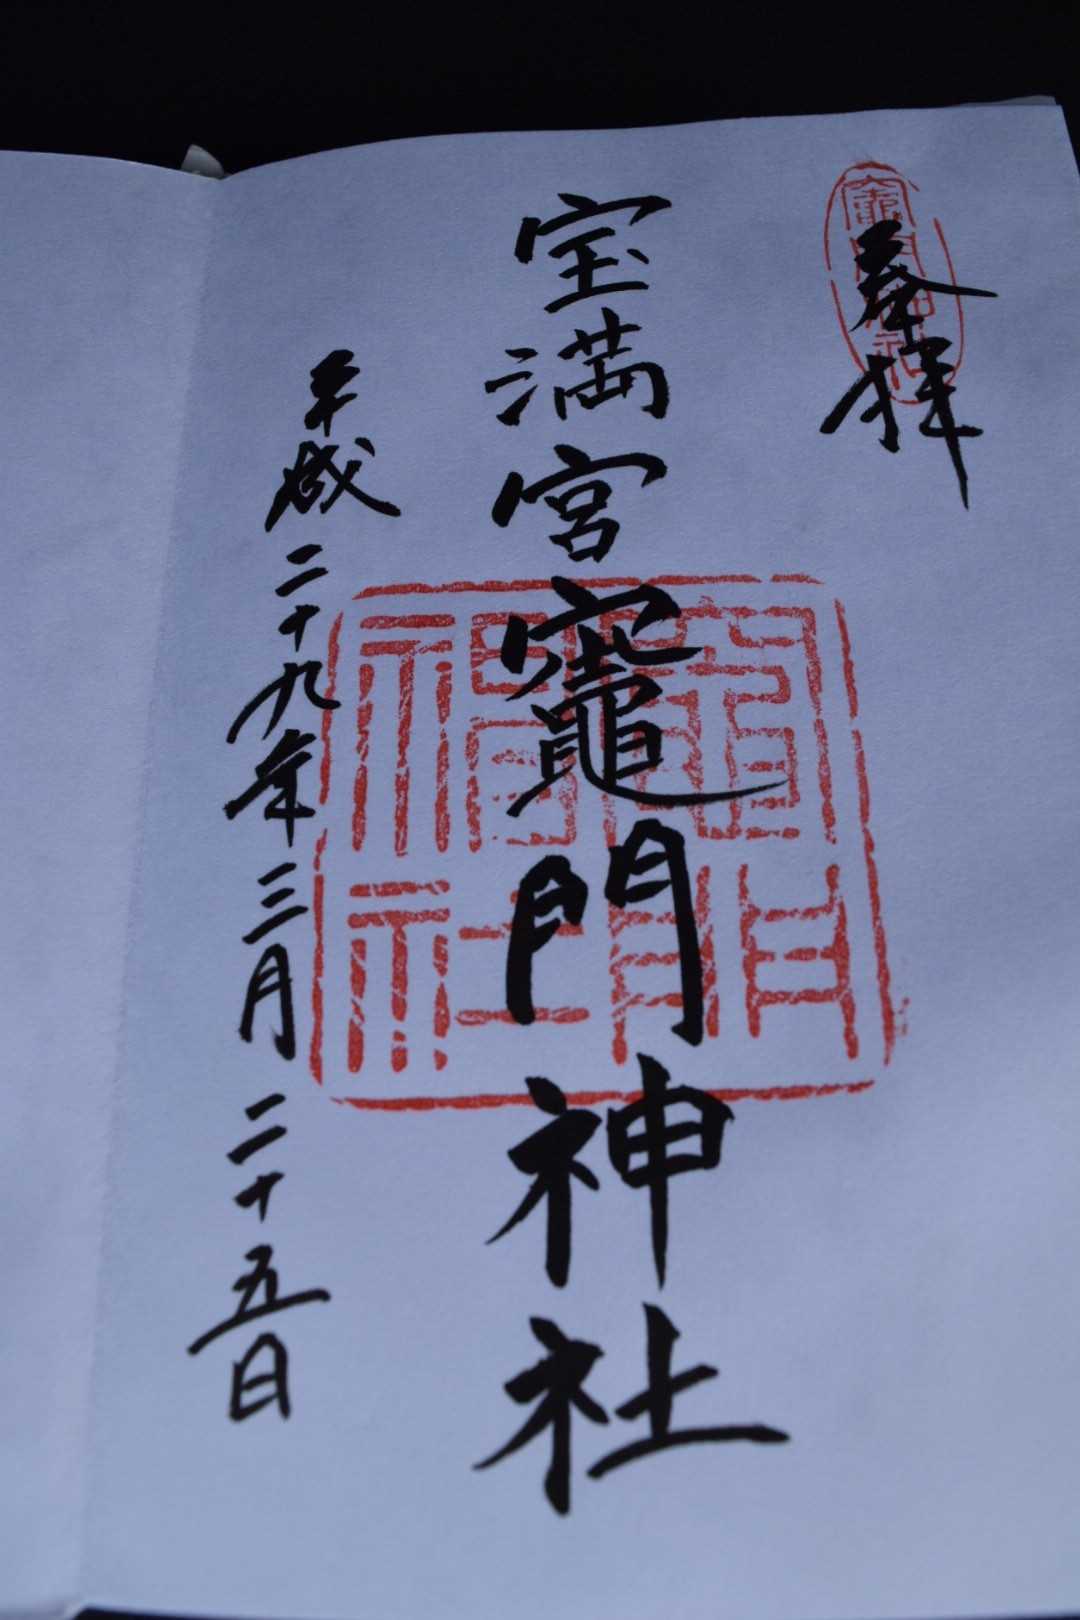 奉拝
竈門神社
宝満宮竈門神社
竈門神社
平成二十九年三月二十五日